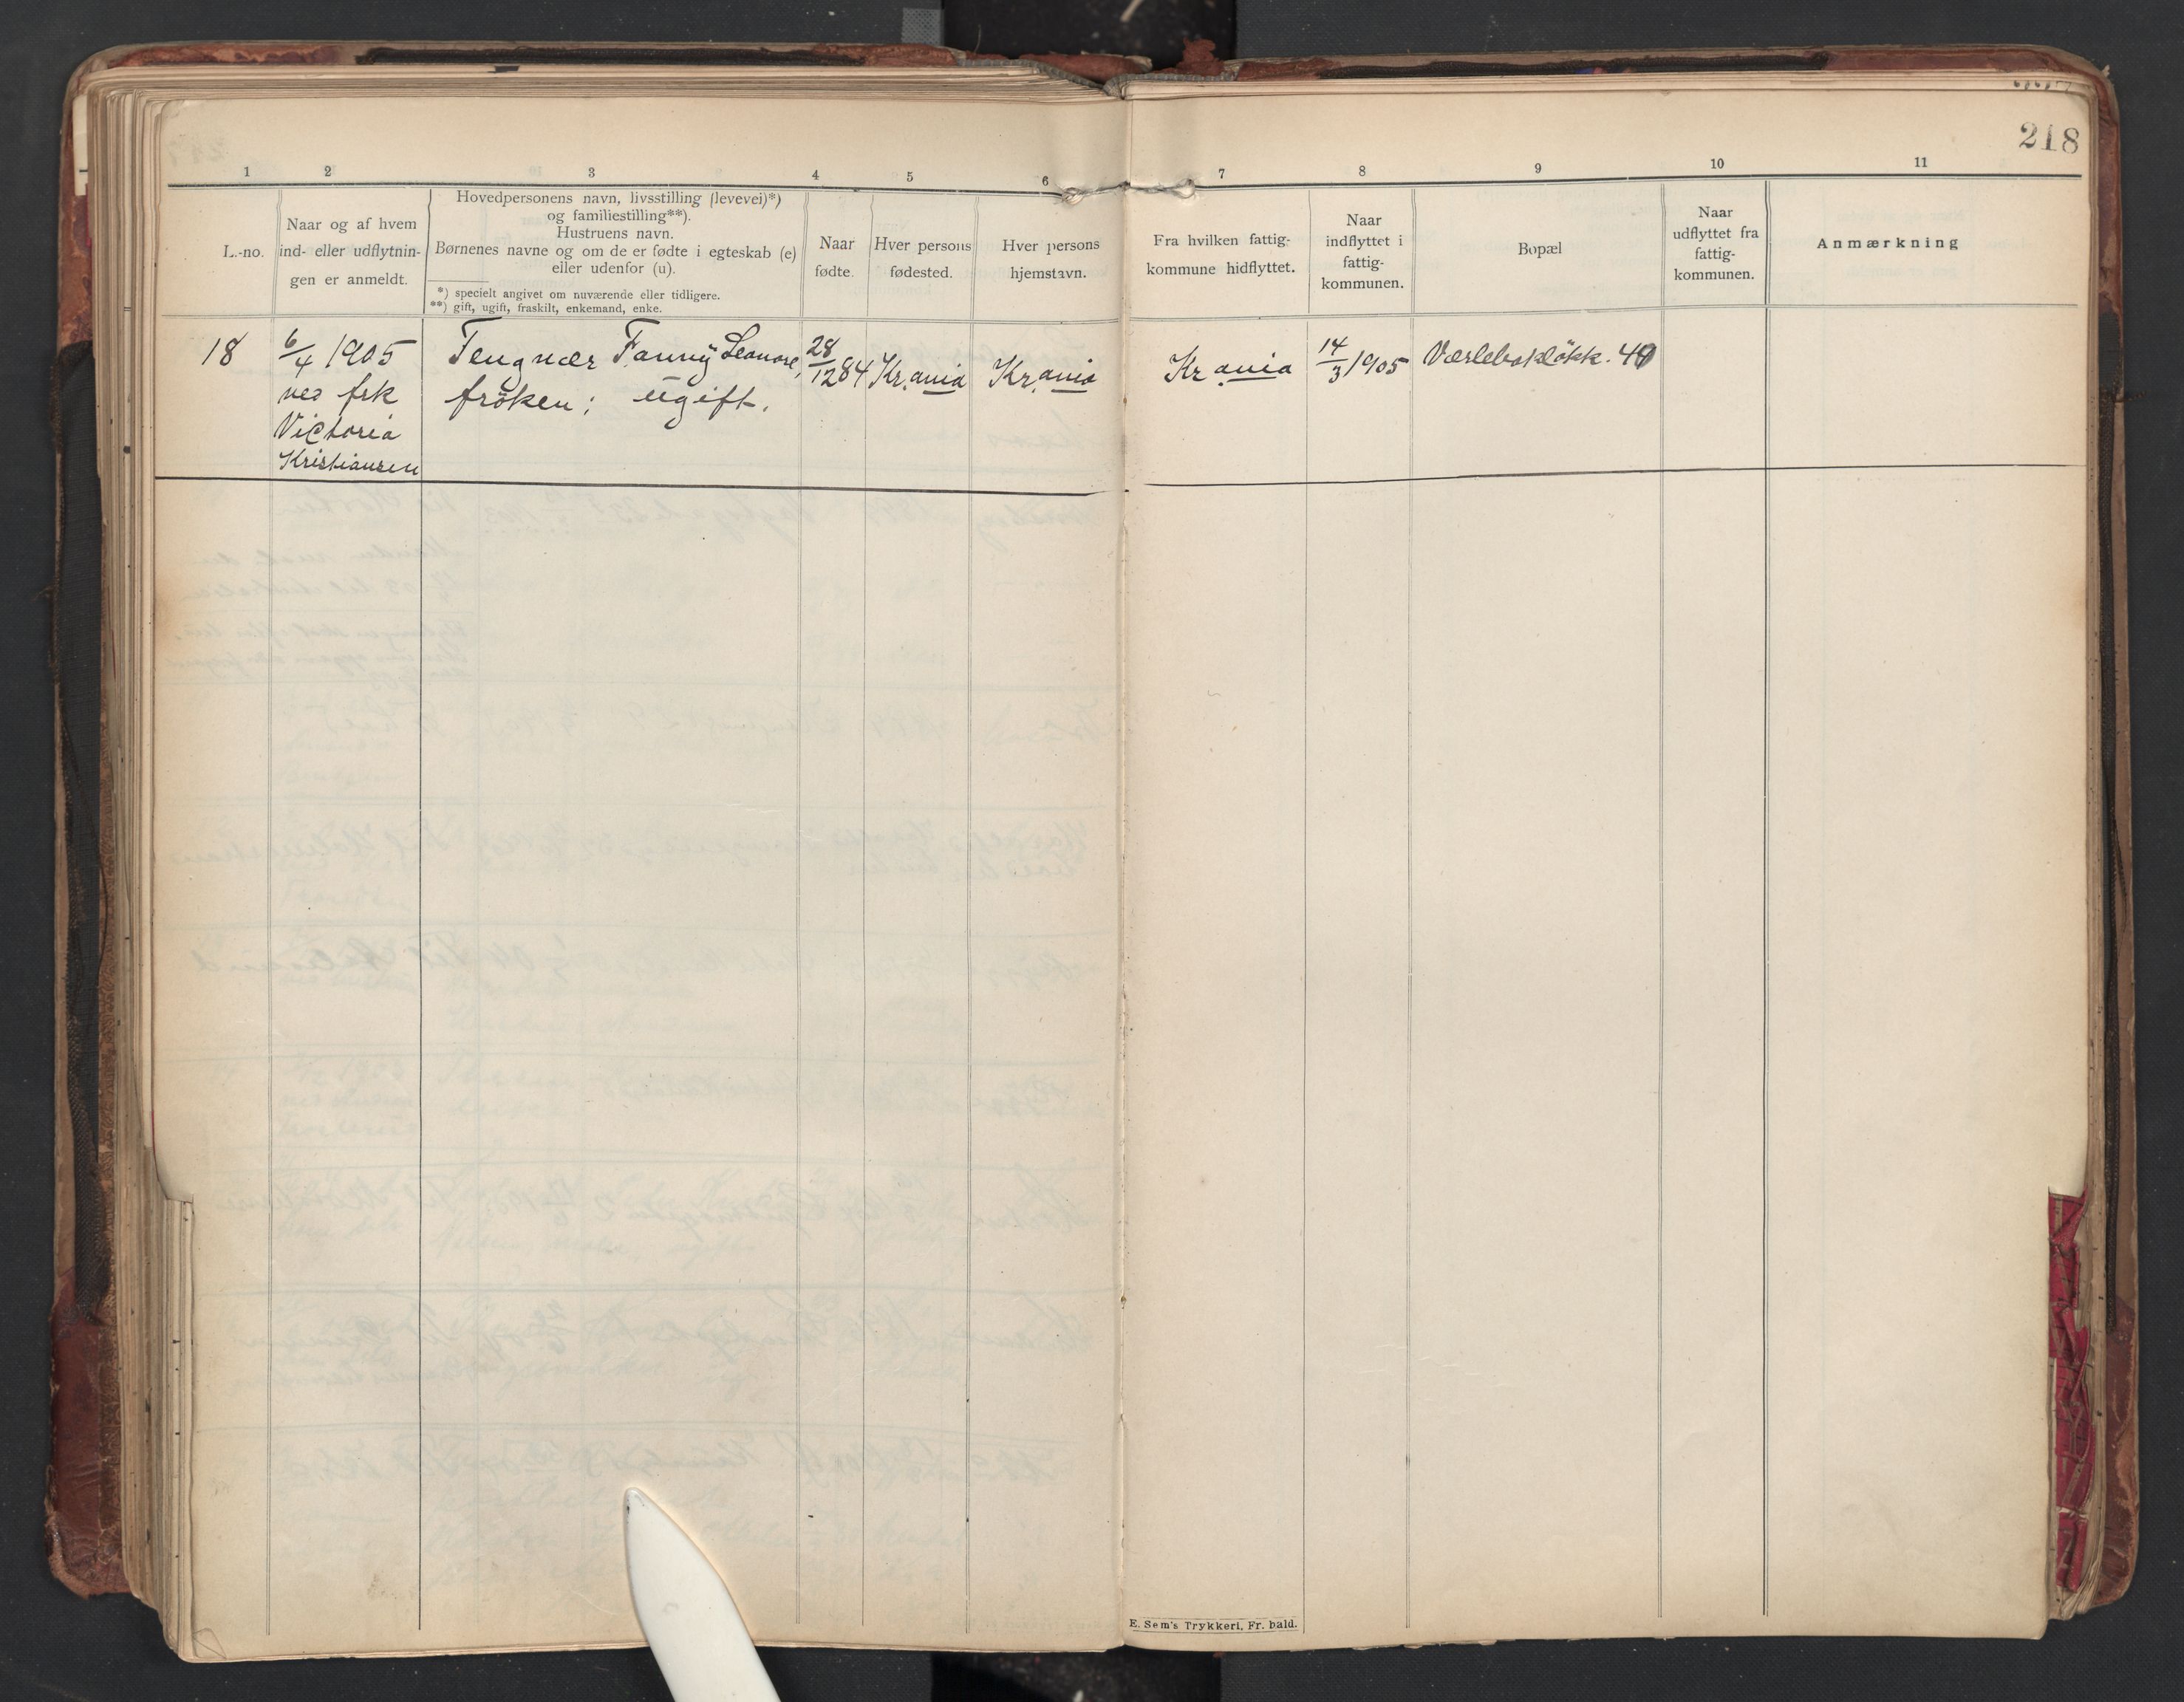 218
1 2 3 4 5 6 7 8 9 10 11
L.-no.
Naar og af hvem
ind- eller udflytnin-
gen er anmeldt.
Hovedpersonens navn, livsstilling (levevei)*)
og familiestilling**).
Hustruens navn.
Børnenes navne og om de er fødte i egteskab (e)
eller udenfor (u).
*) specielt angivet om nuværende eller tidligere.
**) gift, ugift, fraskilt, enkemand, enke.
Naar
fødte.
Hver persons
fødested.
Hver persons
hjemstavn.
Fra hvilken fattig-
kommune hidflyttet.
Naar
indflyttet i
fattig-
kommunen.
Bopæl
Naar
udflyttet fra
fattig-
kommunen.
Anmærkning
18
6/4 1905
ved frk
Victoria
Kristiansen
Tengnær Fanny Leonore,
frøken; ugift.
28/12 84
Kr.ania
Kr.ania
Kr.ania
14/3 1905
Værlebokløkk.
E. Sem's Trykkeri, Fr. hald.